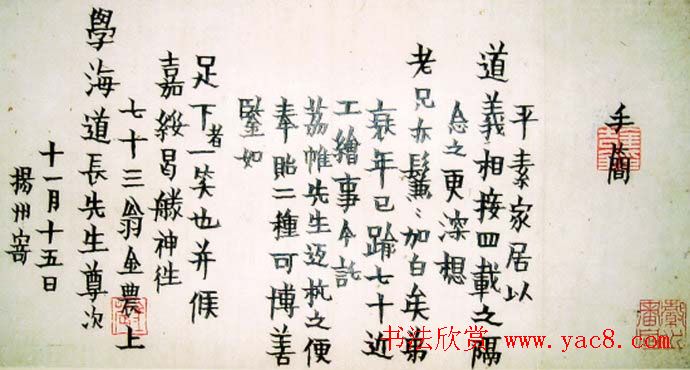 手簡
平素家居以
道義相接四載之隔
念之更深想
老兄亦鬢〻加白矣弟
衰年已踰七十近
工繪事今託
荔帷先生返杭之便
奉貽二種可博善
鑒如
足下者一笑也并候
嘉綏曷勝神往
七十三翁金農上
學海道長先生尊次
十一月十五日
揚州寄
书法欣赏 www.yac8.com